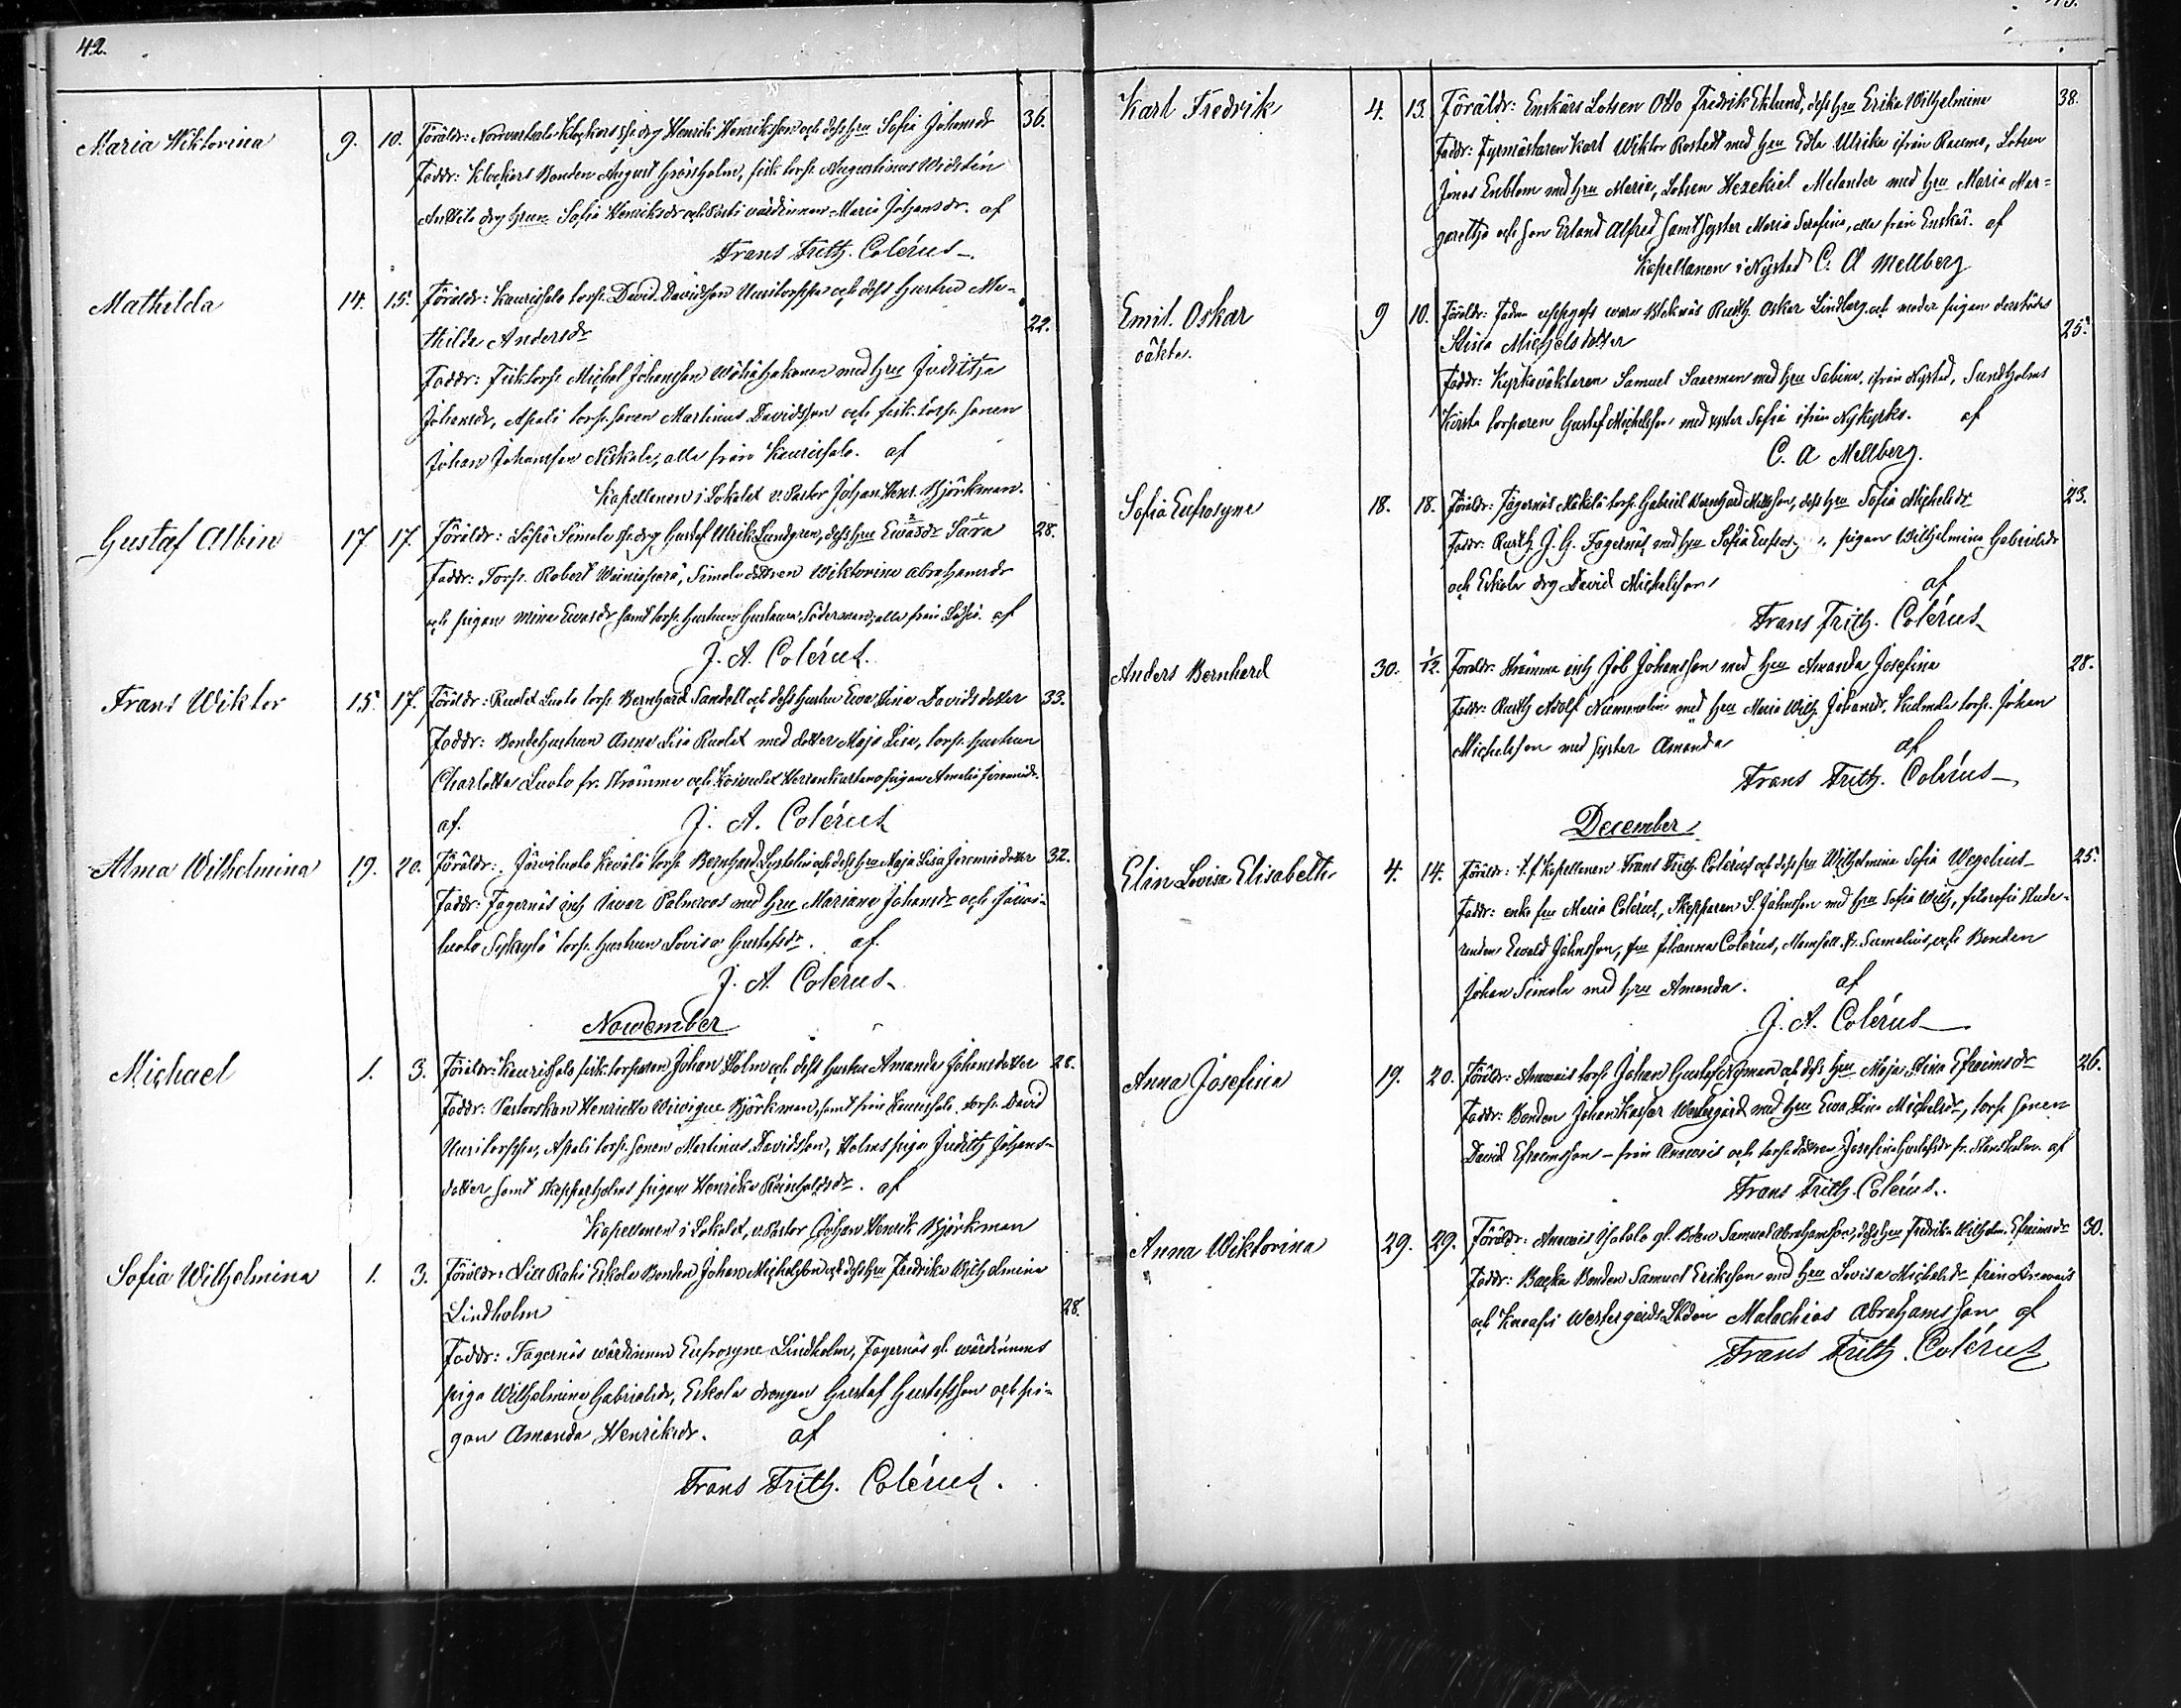 42.
Maria Wiktorina 9. 10. Föräldr: Klockars drg Henrik Henriksson och dess hru Sofia Johansdr 36.
Faddr: Klockars Bonden August Grönholm, fisk torp. Augustinus Widsten
Anttila drg hrun Sofia Henriksdr och värdinnan Maria Johansdr. af
Frans Frith. Colérus
Mathilda 14. 15. Föräldr: Kaurissalo torp. David Davidsson och dess hustru Ma-
thilda Andersdr 22.
Faddr: Fisk torp. Michel Johansson med hru Juditha
Johansdr, Apali torp. sonen Martinus Davidsson och fisk. torp. sonen
Johan Johansson Niskala, alla från Kaurissalo. af
Kapellanen i Lokalax v. Pastor Johan Henr. Björkman.
Gustaf Albin 17 17. Föräldr: Simola drg Gustaf Ulrik Lundgren, dess hru Ewasdr Sara 28.
Faddr: Torp. Robert Simola dottren Wiktorina Abrahamsdr
och pigan Mina Ewasdr samt torp. hustrun Gustava Söderman, alla från af
J. A. Colérus.
Frans Wiktor 15. 17. Föräldr: Luoto torp. Bernhard Sandell och dess hustru Ewa Stina Davidsdotter 33.
Faddr: Bondehustrun Anna Lisa med dotter Maja Lisa, torp. hustrun
Charlotta Luoto fr. Strömma och pigan Amalia
af. J. A. Colérus
Alma Wilhelmina 19. 20. Föräldr: Järviluoto torp. Bernhard och dess hru Maja Lisa Jeremiedotter 32.
Faddr: Fagernäs inh Ivar Palmroos med hru Mariana Johansdr och Järvi-
luoto torp. hustrun Lovisa Gustafsdr. af.
J. A. Colérus
November
Michael 1. 3. Föräldr: Kaurissalo fisk. torparen Johan Holm och dess hustru Amanda Johansdotter 28.
Faddr: Pastorskan Henrietta Björkman, samt från Kaurissalo torp. David
Apali torp. sonen Martinus Davidsson, Holms piga Judith Johans-
dotter samt Skepparholms pigan Henrika Reinholdsdr. af
Kapellanen i Lokalax, v. Pastor Johan Henrik Björkman
Sofia Wilhelmina 1. 3. Föräldr: Eskola Bonden Johan Michelsson och dess hru Fredrika Wilhelmina
Lindholm 28.
Faddr: Fagernäs wärdinnan Eufrosyne Lindholm, Fagernäs gl. wärdinnans
piga Wilhelmina Gabrielsdr, Eskola drengen Gustaf Gustafsson och pi-
gan Amanda Henriksdr. af
Frans Frith. Colérus.
Karl Fredrik 4. 13. Föräldr: Enskärs Lotsen Otto Fredrik Eklund, dess hru Erika Wilhelmina 38.
Faddr: Fyrmästaren Karl Wiktor Rostedt med hru Edla Ulrika ifrån Raumo, Lotsen
Jonas Enblom med hru Maria, Lotsen Hezekiel Melander med hru Maria Mar-
garetha och son Erland Alfred samt syster Maria Serafina, alla från Enskär. af
Kapellanen i Nystad C. A Mellberg
Emil Oskar 9 10. Föräldr: Fadren uppgafs wara Rusth. Oskar Lindberg och moder pigan derstädes
oäkta. Stina Michelsdotter 25.
Faddr: Kyrkoväktaren Samuel Saarman med hru Sabina, ifrån Nystad, Sundholms
torparen Gustaf Michelsson med syster Sofia ifrån Nykyrko. af
C. A Mellberg.
Sofia Eufrosyne 18. 18. Föräldr: Fagernäs Mäkilä torp. Gabriel Bernhard dess hru Sofia Michelsdr 23.
Faddr: Rusth. J. G. Fagernäs med hru Sofia pigan Wilhelmina Gabrielsdr
och Eskola drg David Michelsson af
Frans Frith. Colérus
Anders Bernhard 30. 1/12. Föräldr: Strömma inh Job Johansson med hru Amanda Josefina 28.
Faddr: Rusth Adolf Nummelin med hru Maria Wilh. Johansdr, torp. Johan
Michelsson med syster Amanda af
Frans Frith. Colérus
December
Elin Lovisa Elisabeth 4. 14. Föräldr: t.f. Kapellanen Frans Frith. Colérus och dess fru Wilhelmina Sofia Wegelius 25.
Faddr: enke fru Maria Colérus, Skepparen S. Jahnsson med hru Sofia Wilh, filosofie Stude-
randen Ewald Jahnsson, fru Johanna Colérus, Mamsell A. Sumelius, och Bonden
Johan Simola med hru Amanda. af
J. A. Colérus
Anna Josefina 19. 20. Föräldr: Anavais torp. Johan Gustaf Nyman och dess hru Maja Stina Efraimsdr 26.
Faddr: Bonden Johan Kasper Westergård med hru Ewa Stina Michelsdr, torp. sonen
David Efraimsson – från Anavais och torp. dottren Josefina Gustafsdr fr. af
Frans Frith. Colérus.
Anna Wiktorina 29. 29. Föräldr: Anavais gl. Bden Samuel Abrahamsson, dess hru Fredrika Wilhelm. Efraimsdr 30.
Faddr: Backa Bonden Samuel Eriksson med hru Lovisa Michelsdr från Anavais
och Westergårds Malachias Abrahamsson af
Frans Frith. Colérus